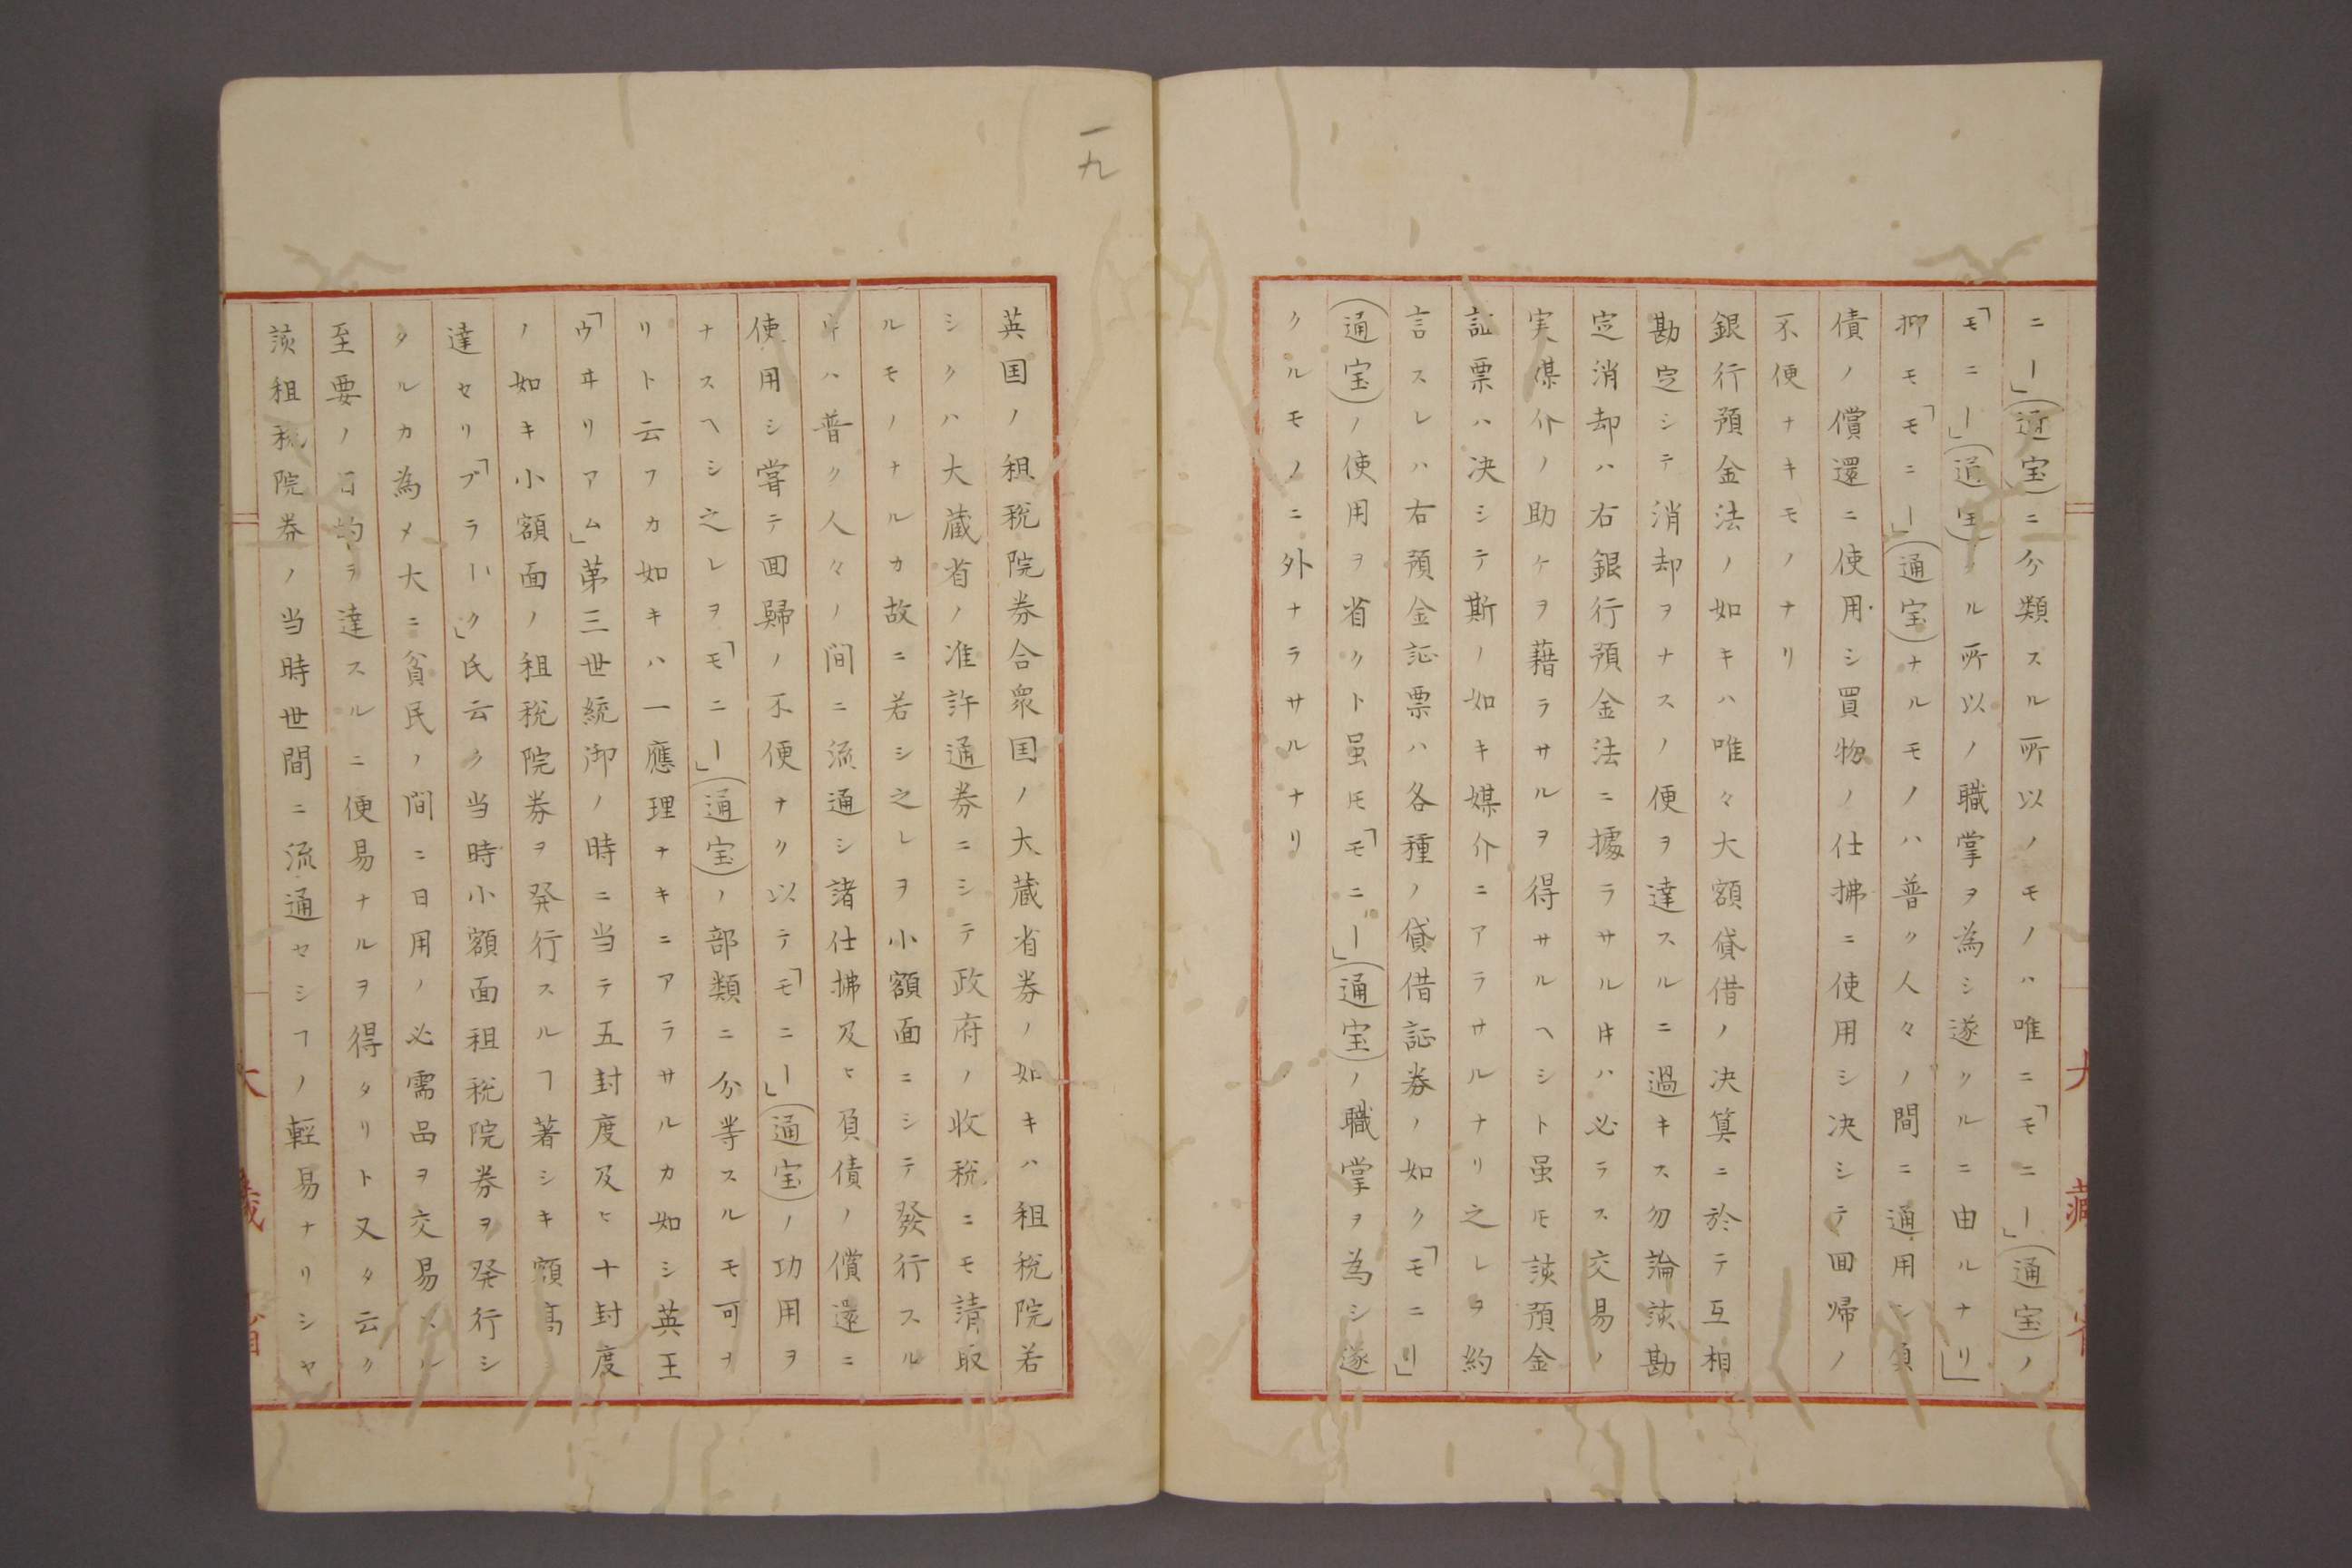 ニー」(通宝)ニ分類スル所以ノモノハ唯ニ「モニー」(通宝)ノ
「モニー」(通宝)タル所以ノ職掌ヲ為シ遂クルニ由ルナリ」
抑モ「モニー」(通宝)ナルモノハ普ク人々ノ間ニ通用シ負
債ノ償還ニ使用シ買物ノ仕拂ニ使用シ决シテ囬帰ノ
不便ナキモノナリ
銀行預金法ノ如キハ唯々大額貸借ノ决算ニ於テ互相
勘定シテ消却ヲナスノ便ヲ達スルニ過キス勿論該勘
定消却ハ右銀行預金法ニ據ラサル𪜈ハ必ラス交易ノ
実媒介ノ助ケヲ藉ラサルヲ得サルヘシト虽𪜈該預金
証票ハ决シテ斯ノ如キ媒介ニアラサルナリ之レヲ約
言スレハ右預金証票ハ各種ノ貸借証券ノ如ク「モニリ」
(通宝)ノ使用ヲ省クト虽𪜈「モニー」(通宝)ノ職掌ヲ為シ遂
クルモノニ外ナラサルナリ
一九
英国ノ租税院券合衆国ノ大蔵省券ノ如キハ租税院若
シクハ大蔵省ノ准許通券ニシテ政府ノ收税ニモ請取
ルモノナルカ故ニ若シ之レヲ小額面ニシテ發行スル
𪜈ハ普ク人々ノ間ニ流通シ諸仕拂及ヒ負債ノ償還ニ
使用シ甞テ囬歸ノ不便ナク以テ「モニー」(通宝)ノ功用ヲ
ナスヘシ之レヲ「モニー」(通宝)ノ部類ニ分等スルモ可ナ
リト云フカ如キハ一應理ナキニアラサルカ如シ英王
「ウヰリアム」第三世統御ノ時ニ当テ五封度及ヒ十封度
ノ如キ小額面ノ租税院券ヲ発行スルヿ著シキ額高
達セリ「ブラーク」氏云ク当時小額面租税院券ヲ発行シ
タルカ為メ大ニ貧民ノ間ニ日用ノ必需品ヲ交易スル
至要ノ目的ヲ達スルニ便易ナルヲ得タリト又タ云ク
該租税院券ノ当時世間ニ流通セシヿノ軽易ナリシヤ
大蔵省